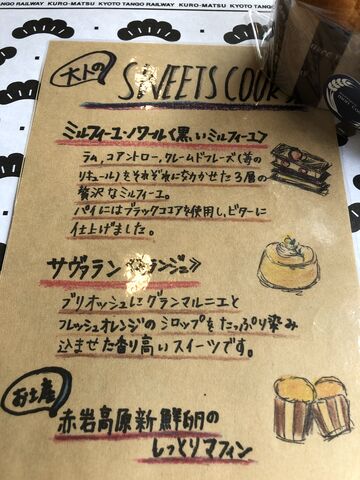 TANGO RAILWAY KURO-MATSU KYOTO TANGO RAILWAY KURO-MATSU KYOTO TANGO RAILWAY
大人の SWEETS COURSE
ミルフィーユ・ノワール《黒いミルフィーユ》
ラム、コアントロー、クレームドフレーズ(苺の
リキュール)をそれぞれになりかせた3層の
贅沢なミルフィーユ。
パイにはブラックココアを使用し、ビターに
仕上げました。
サヴァラン《オランジュ》
ブリオッシュにグランマルニエと
フレッシュオレンジのシロップをたっぷり染み
込ませた香り高いスイーツです。
お土産
赤岩高原新鮮卵の
しっとりマフィン